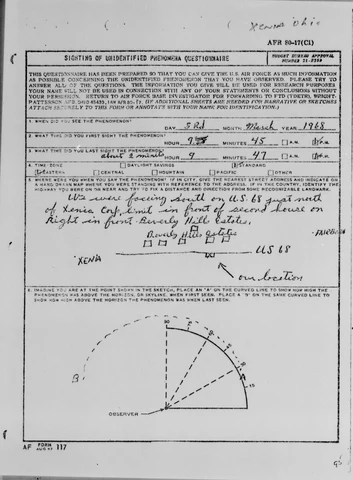 Xenia Ohio
AFR 80-17(C1)
SIGHTING OF UNIDENTIFIED PHENOMENA QUESTIONNAIRE
THIS QUESTIONNAIRE HAS BEEN PREPARED SO THAT YOU CAN GIVE THE U.S. AIR FORCE AS MUCH INFORMATION
AS POSSIBLE CONCERNING THE UNIDENTIFIED PHENOMENON THAT YOU HAVE OBSERVED. PLEASE TRY TO
ANSWER ALL OF THE QUESTIONS. THE INFORMATION YOU GIVE WILL BE USED FOR RESEARCH PURPOSES.
YOUR NAME WILL NOT BE USED IN CONNECTION WITH ANY OF YOUR STATEMENTS OR CONCLUSIONS WITHOUT
YOUR PERMISSION. RETURN TO AIR FORCE BASE INVESTIGATOR FOR FORWARDING TO FTD (TDETR), WRIGHT-
PATTERSON AFB, OHIO 45433, IAW AFR 80-17.
1. WHEN DID YOU SEE THE PHENOMENON?
DAY 3 Rd MONTH March YEAR 1968
2. WHAT TIME DID YOU FIRST SIGHT THE PHENOMENON?
HOUR 9 MINUTES 45 A.M. P.M.
3. WHAT TIME DID YOU LAST SIGHT THE PHENOMENON?
about 2 minutes HOUR 9 MINUTES 47 A.M. P.M.
4. TIME ZONE DAYLIGHT SAVINGS STANDARD
EASTERN CENTRAL MOUNTAIN PACIFIC OTHER
5. WHERE WERE YOU WHEN YOU SAW THE PHENOMENON? IF IN CITY, GIVE THE NEAREST STREET ADDRESS AND INDICATE ON
A HAND DRAWN MAP WHERE YOU WERE STANDING WITH REFERENCE TO THE ADDRESS. IF IN THE COUNTRY, IDENTIFY THE
HIGHWAY YOU WERE ON OR NEAR AND TRY TO FIX A DISTANCE AND DIRECTION FROM SOME RECOGNIZABLE LANDMARK.
We were facing south on U.S. 68 just north
of Xenia Corp. limit in front of second house on
Right in front Beverly Hill Estates.
Beverly Hills Estates
XENIA
US 68
our location
6. IMAGINE YOU ARE AT THE POINT SHOWN IN THE SKETCH. PLACE AN "A" ON THE CURVED LINE TO SHOW HOW HIGH THE
PHENOMENON WAS ABOVE THE HORIZON, OR SKYLINE, WHEN FIRST SEEN. PLACE A "B" ON THE SAME CURVED LINE TO
SHOW HOW HIGH ABOVE THE HORIZON THE PHENOMENON WAS WHEN LAST SEEN.
B
OBSERVER
AF FORM 117